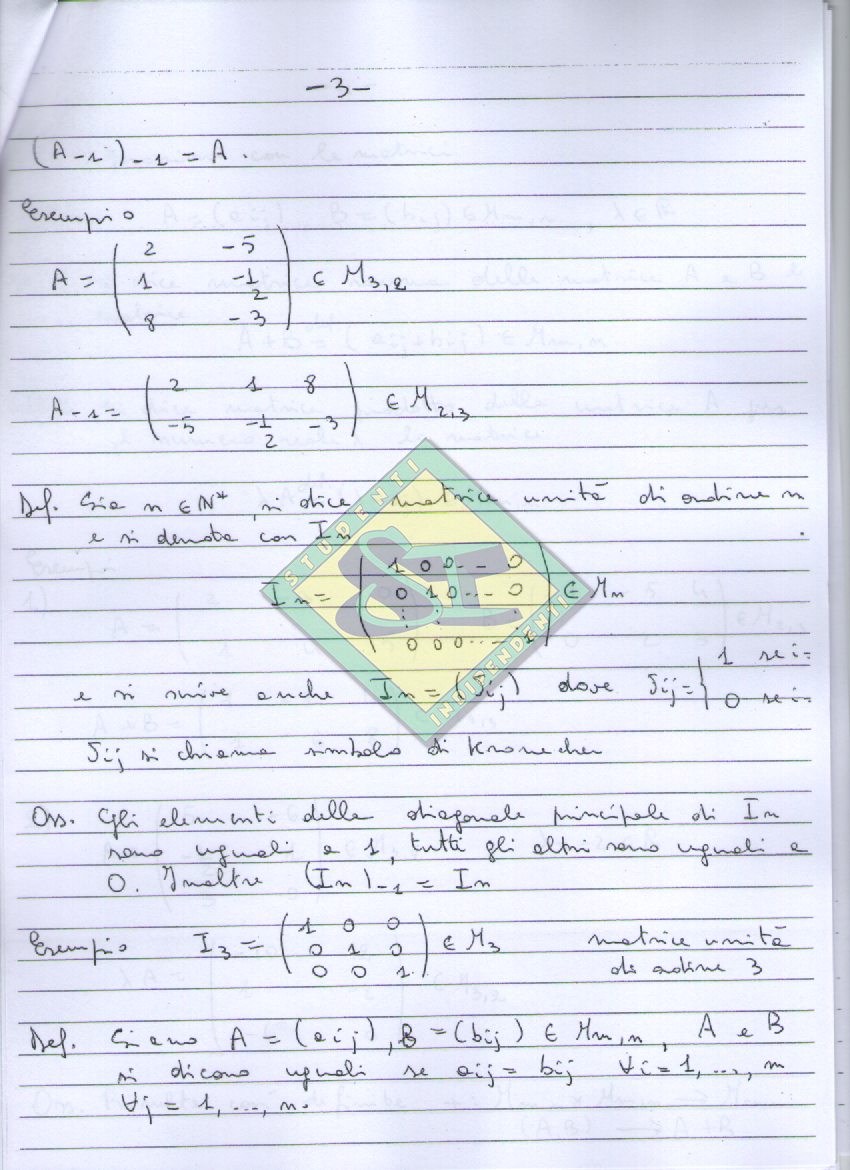 -3-
(A-1)-1 = A.
Esempio
A = ( 2 -5
1 -1/2
8 -3 ) ∈ M3,2
A-1 = ( 2 1 8
-5 -1/2 -3 ) ∈ M2,3
Def. Sia n ∈ N*, si dice matrice unità di ordine n
e si denota con In
In = ( 1 0 0 ... 0
0 1 0 ... 0
⋮ ⋮
0 0 0 ... 1 ) ∈ Mn
e si scrive anche In = (δij) dove δij = { 1 se i=
0 se i=
δij si chiama simbolo di Kronecker
Oss. Gli elementi della diagonale principale di In
sono uguali a 1, tutti gli altri sono uguali a
0. Inoltre (In)-1 = In
Esempio I3 = ( 1 0 0
0 1 0
0 0 1 ) ∈ M3 matrice unità
di ordine 3
Def. Siano A = (aij), B = (bij) ∈ Mm,n, A e B
si dicono uguali se aij = bij ∀i = 1, ..., m
∀j = 1, ..., n.
STUDENTI
SI
INDIPENDENTI